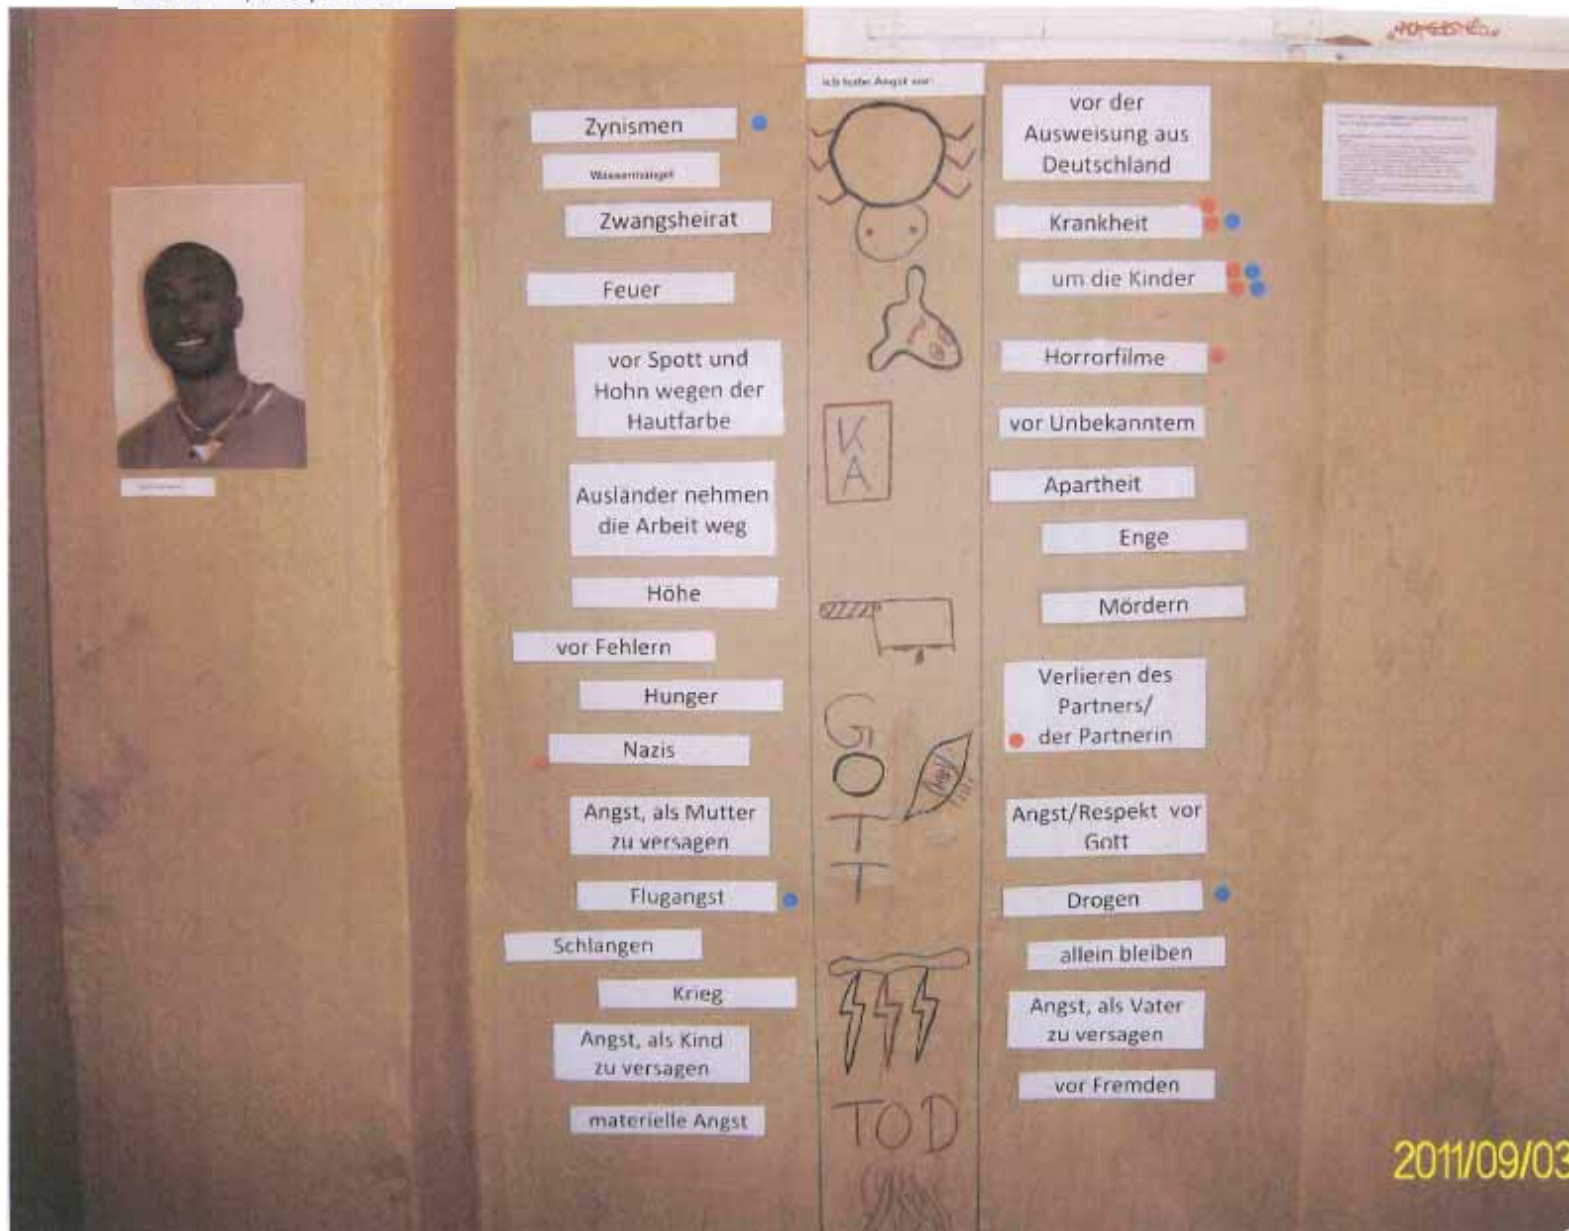 ich habe Angst vor:
Zynismen
Wassermangel
Zwangsheirat
Feuer
vor Spott und
Hohn wegen der
Hautfarbe
Ausländer nehmen
die Arbeit weg
Höhe
vor Fehlern
Hunger
Nazis
Angst, als Mutter
zu versagen
Flugangst
Schlangen
Krieg
Angst, als Kind
zu versagen
materielle Angst
K
A
GOTT
TOD
vor der
Ausweisung aus
Deutschland
Krankheit
um die Kinder
Horrorfilme
vor Unbekanntem
Apartheit
Enge
Mördern
Verlieren des
Partners/
der Partnerin
Angst/Respekt vor
Gott
Drogen
allein bleiben
Angst, als Vater
zu versagen
vor Fremden
2011/09/03